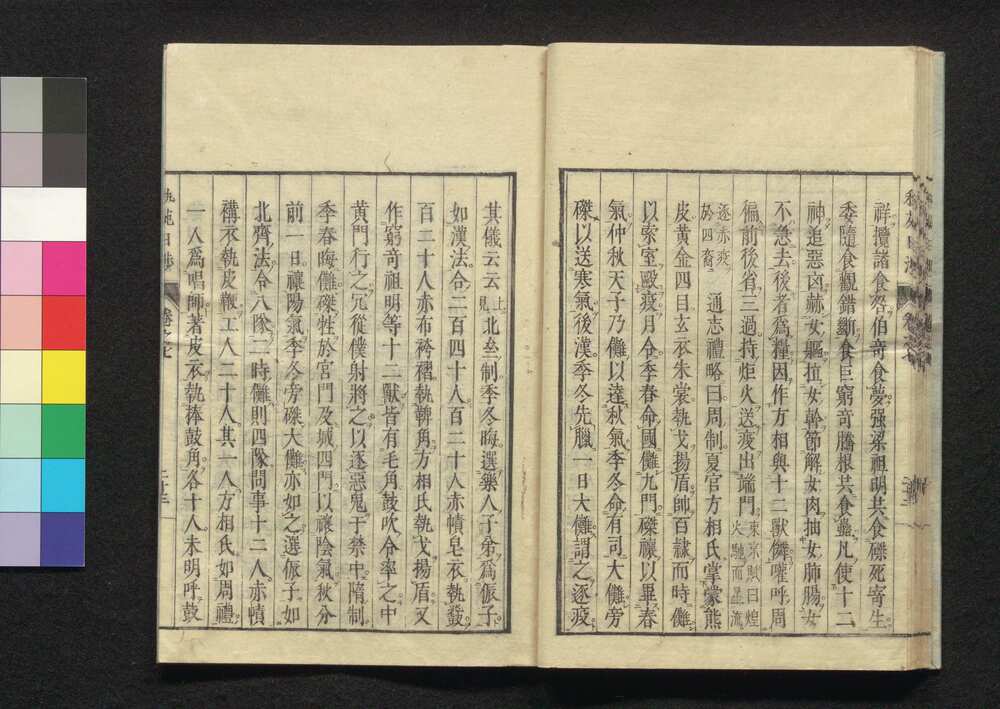 祥攬諸食咎伯奇食夢强梁祖明共食磔死寄生
委隨食觀錯斷食巨窮奇騰根共食蠱凡使十二
神追惡凶赫女軀拉女幹節解女肉抽女肺腸女
不急去後者爲糧因作方相與十二獸儛嚾呼周
徧前後省三過持炬火送疫出端門 東京賦曰煌火馳而星流
逐赤疫於四裔 通志禮略曰周制夏官方相氏掌蒙熊
皮黄金四目玄衣朱裳執戈揚盾帥百隷而時儺
以索室毆疫月令季春命國儺九門磔禳以畢春
氣仲秋天子乃儺以達秋氣季冬命有司大儺旁
磔以送寒氣後漢季冬先臘一日大儺謂之逐疫
其儀云云 上見 北叁制季冬晦選樂人子弟爲侲子
如漢法合二百四十人百二十人赤幘皂衣執鼗
百二十人赤布袴褶執鞞角方相氏執戈揚盾又
作窮奇祖明等十二獸皆有毛角鼓吹令率之中
黄門行之冗從僕射將之以逐惡鬼于禁中隋制
季春晦儺磔牲於宮門及城四門以禳陰氣秋分
前一日禳陽氣季冬旁磔大儺亦如之選侲子如
北齊法令八隊二時儺則四隊問事十二人赤幘
褠衣執皮鞭工人二十人其一人方相氏如周禮
一人爲唱師著皮衣執棒鼓角各十人未明呼鼓